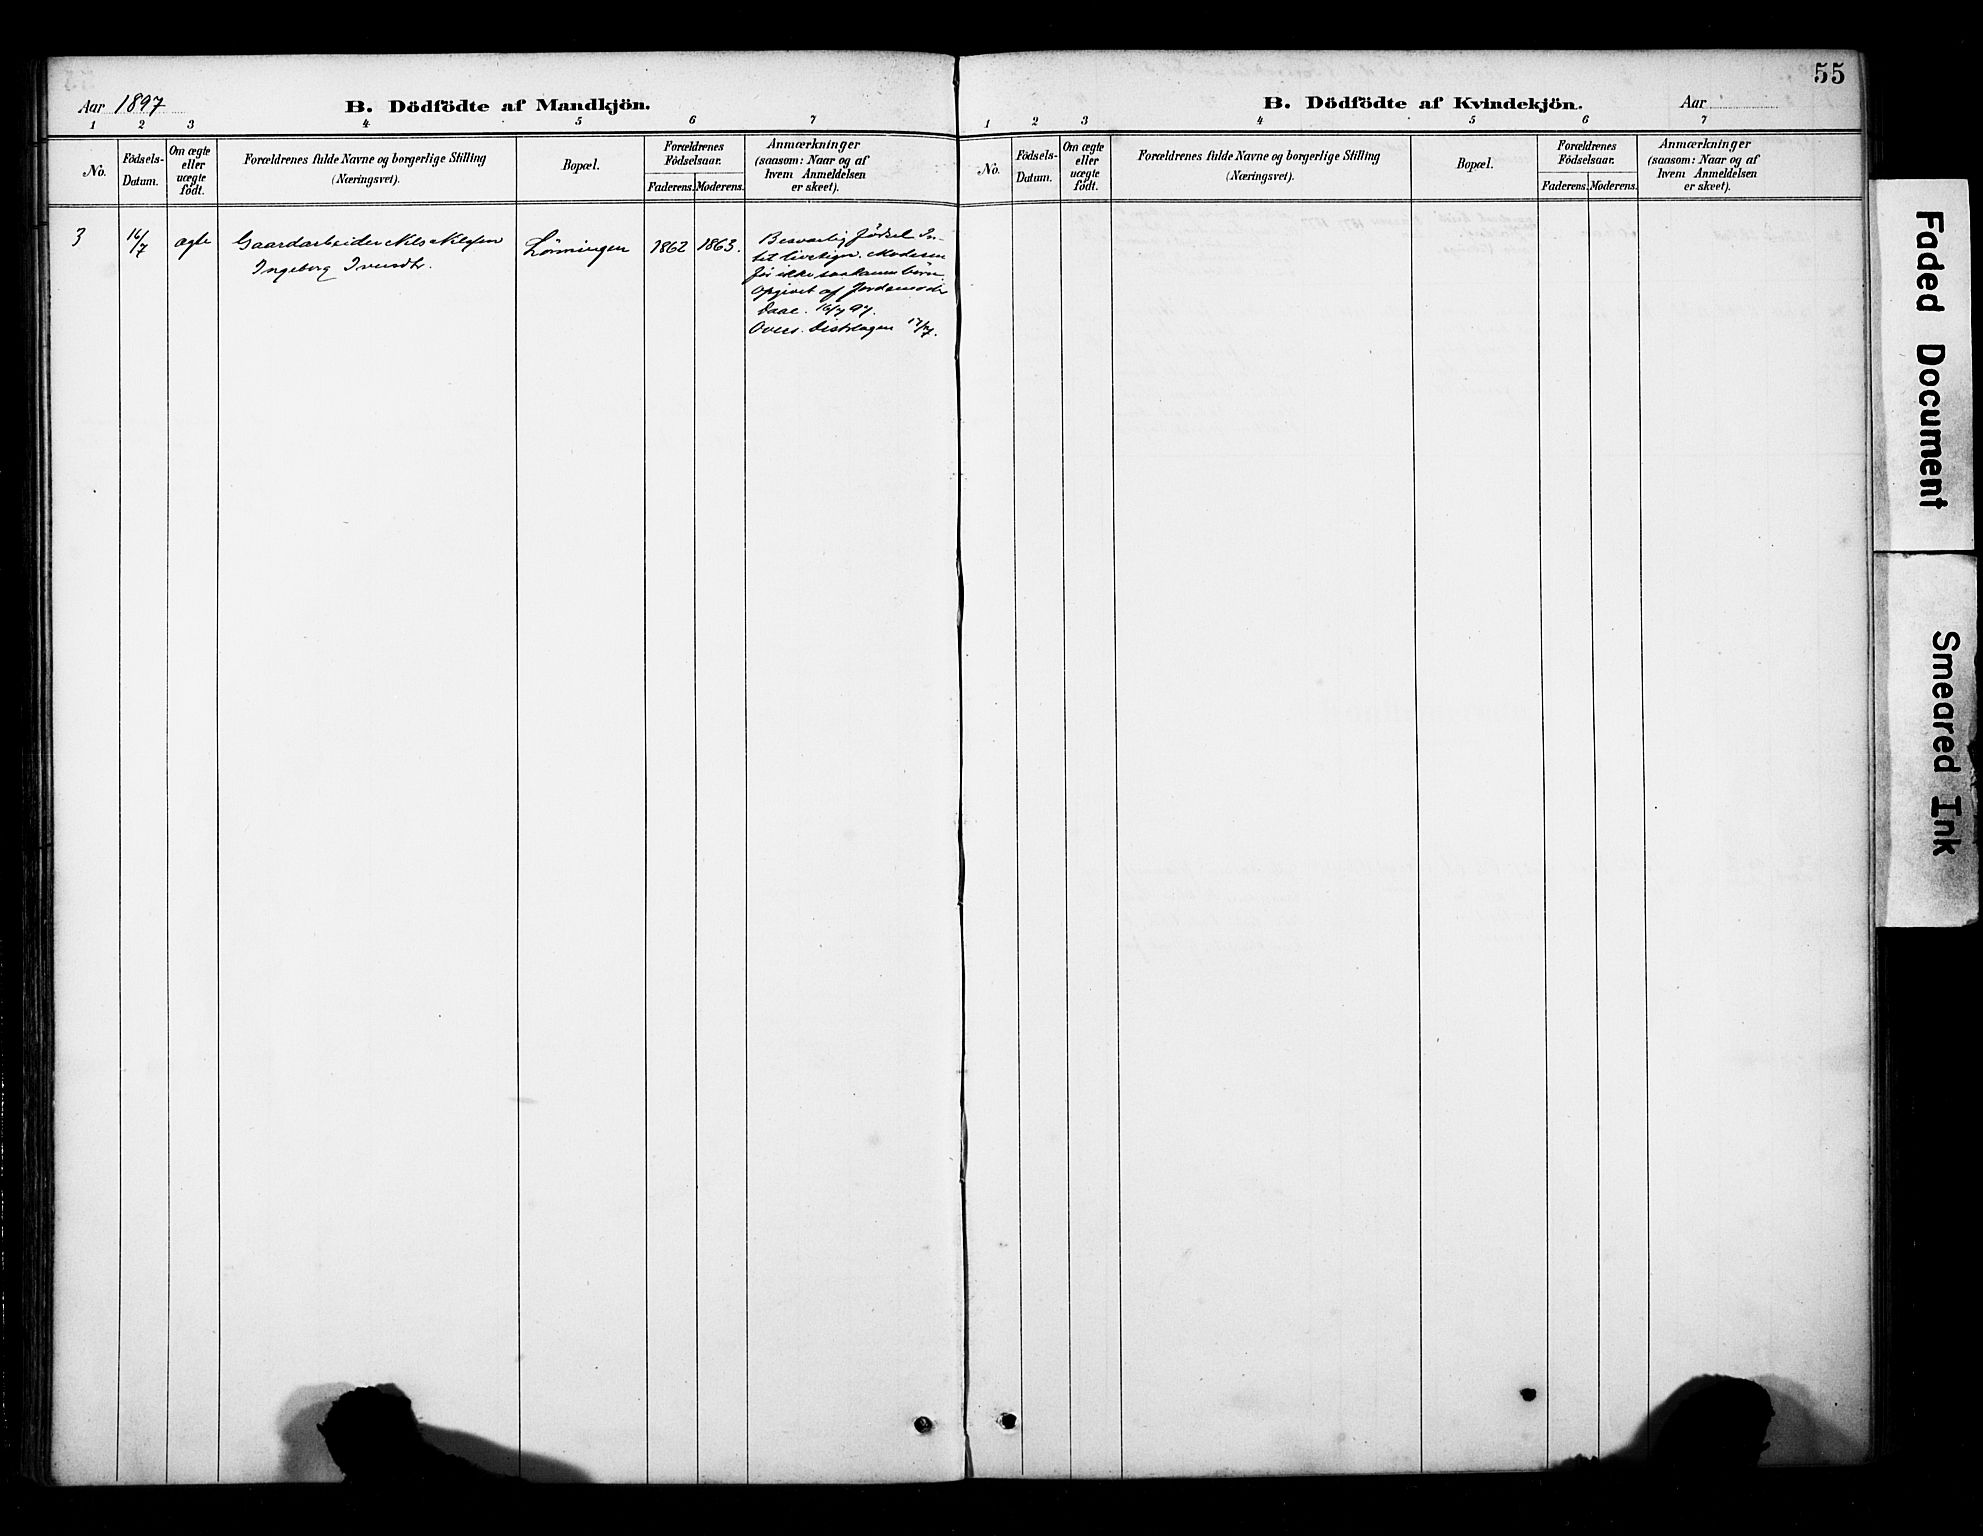 55
Aar 1897 B. Dödfödte af Mandkjön.
1 2 3 4 5 6 7
No. Födsels-Datum. Om ægte eller uægte födt. Forældrenes fulde Navne og borgerlige Stilling (Næringsvei). Bopæl. Forældrenes Födselsaar. Faderens. Moderens. Anmærkninger (saasom: Naar og af hvem Anmeldelsen er skeet).
3 16/7 ægte Gaardarbeider Nils Nilsen
Ingeborg Iversdtr.
Lönningen 1862 1863.
Besværlig Födsel In-
tet livstegn. Moderen
för ikke saadanne börn
Opgivet af Jordemoder
Daae. 16/7 97.
17/7.
B. Dödfödte af Kvindekjön. Aar
1 2 3 4 5 6 7
No. Födsels-Datum. Om ægte eller uægte födt. Forældrenes fulde Navne og borgerlige Stilling (Næringsvei). Bopæl. Forældrenes Födselsaar. Faderens. Moderens. Anmærkninger (saasom: Naar og af hvem Anmeldelsen er skeet).
Faded Document
Smeared Ink